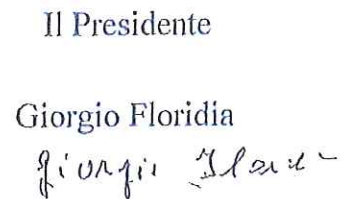 Il Presidente
Giorgio Floridia
Giorgio